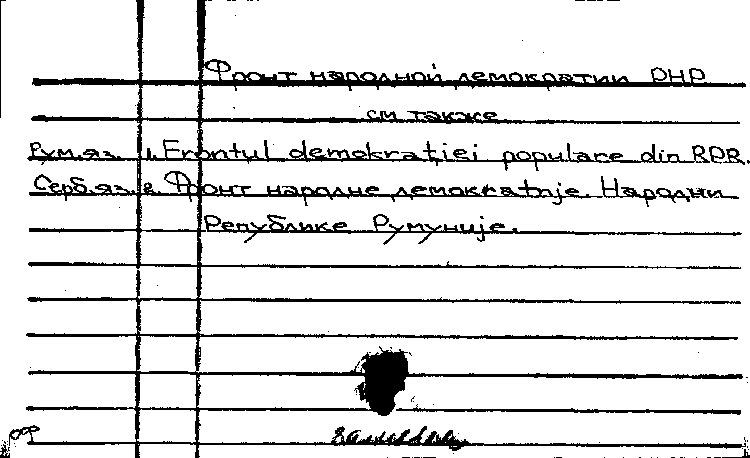 Фронт народной демократии РНР
см также
Рум.яз. 1. Frontul democraţiei populare din RPR.
Серб.яз. 2. Фронт народне демократије Народни
Републике Румуније.